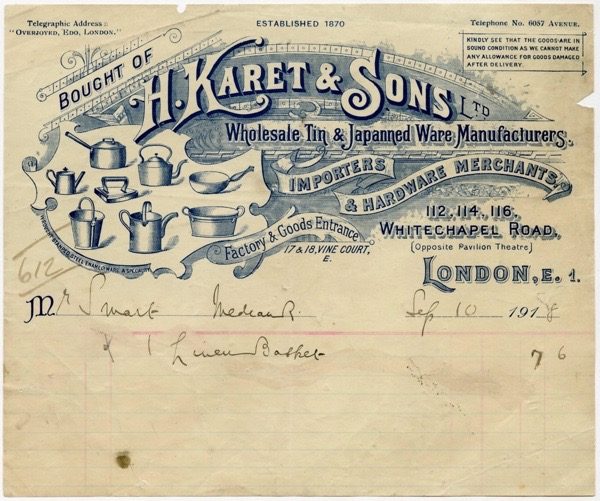 Telegraphic Address:
"OVERJOYED, EDO, LONDON."
ESTABLISHED 1870
Telephone No. 6057 AVENUE.
KINDLY SEE THAT THE GOODS ARE IN
SOUND CONDITION AS WE CANNOT MAKE
ANY ALLOWANCE FOR GOODS DAMAGED
AFTER DELIVERY.
BOUGHT OF
H. KARET & SONS LTD
Wholesale Tin & Japanned Ware Manufacturers,
IMPORTERS
& HARDWARE MERCHANTS,
112, 114, 116,
WHITECHAPEL ROAD,
(Opposite Pavilion Theatre)
LONDON, E. 1.
Factory & Goods Entrance
17 & 18, VINE COURT,
E.
WROUGHT STAMPED STEEL ENAMEL WARE A SPECIALITY
612
Mr Smart Sep 10 1918
1 Linen Basket 7 6